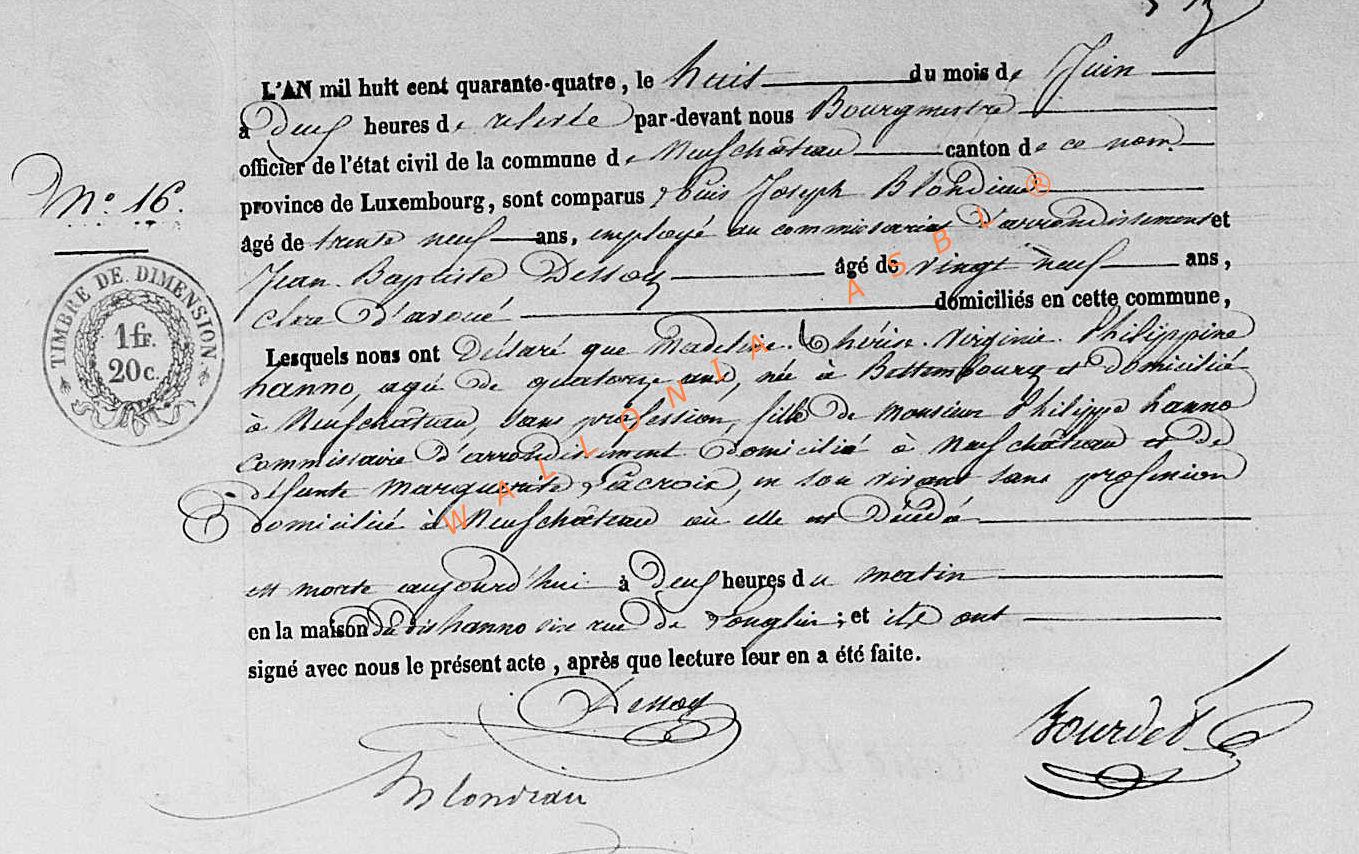 N° 16.
TIMBRE DE DIMENSION.
1 fr.
20 c.
L'AN mil huit cent quarante-quatre, le huit du mois de Juin
à Deux heures de relevée par-devant nous Bourgmestre
officier de l'état civil de la commune de Neufchâteau canton de ce nom
province de Luxembourg, sont comparus Louis Joseph Blondiau
âgé de trente neuf ans, employé au commissariat d'arrondissement et
Jean Baptiste Dessoy âgé de vingt neuf ans,
clerc d'avoué domiciliés en cette commune,
Lesquels nous ont Déclaré que Madeleine Thérèse Virginie Philippine
hanno, agée de quatorze ans, née à Bettembourg et domiciliée
à Neufchâteau, sans profession, fille de Monsieur Philippe hanno
commissaire d'arrondissement domicilié à Neufchâteau et de
défunte Marguerite Lacroix, en son vivant sans profession
domiciliée à Neufchâteau où elle est Décédée
est morte aujourd'hui à deux heures du matin
en la maison du dit hanno sise rue de Longlier ; et ils ont
signé avec nous le présent acte, après que lecture leur en a été faite.
Dessoy
Blondiau
Bourdet
WALLONIA ASBL ®